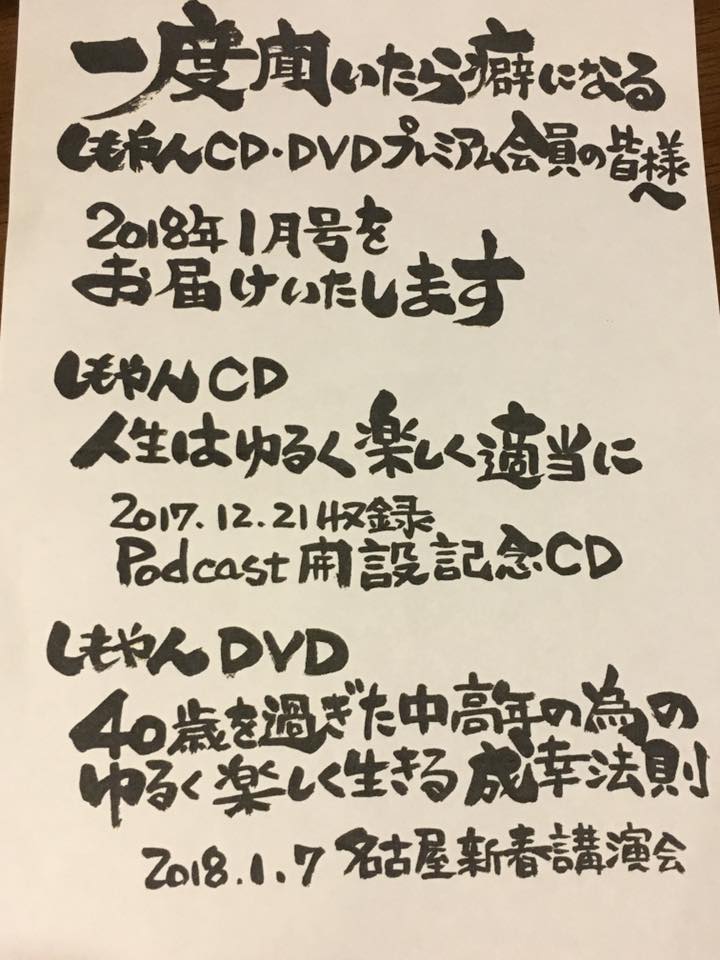 一度聞いたら癖になる
しもやんCD・DVDプレミアム会員の皆様へ
2018年1月号を
お届けいたします
しもやんCD
人生はゆるく楽しく適当に
2017.12.21収録
Podcast開設記念CD
しもやんDVD
40歳を過ぎた中高年の為の
ゆるく楽しく生きる成幸法則
2018.1.7 名古屋新春講演会